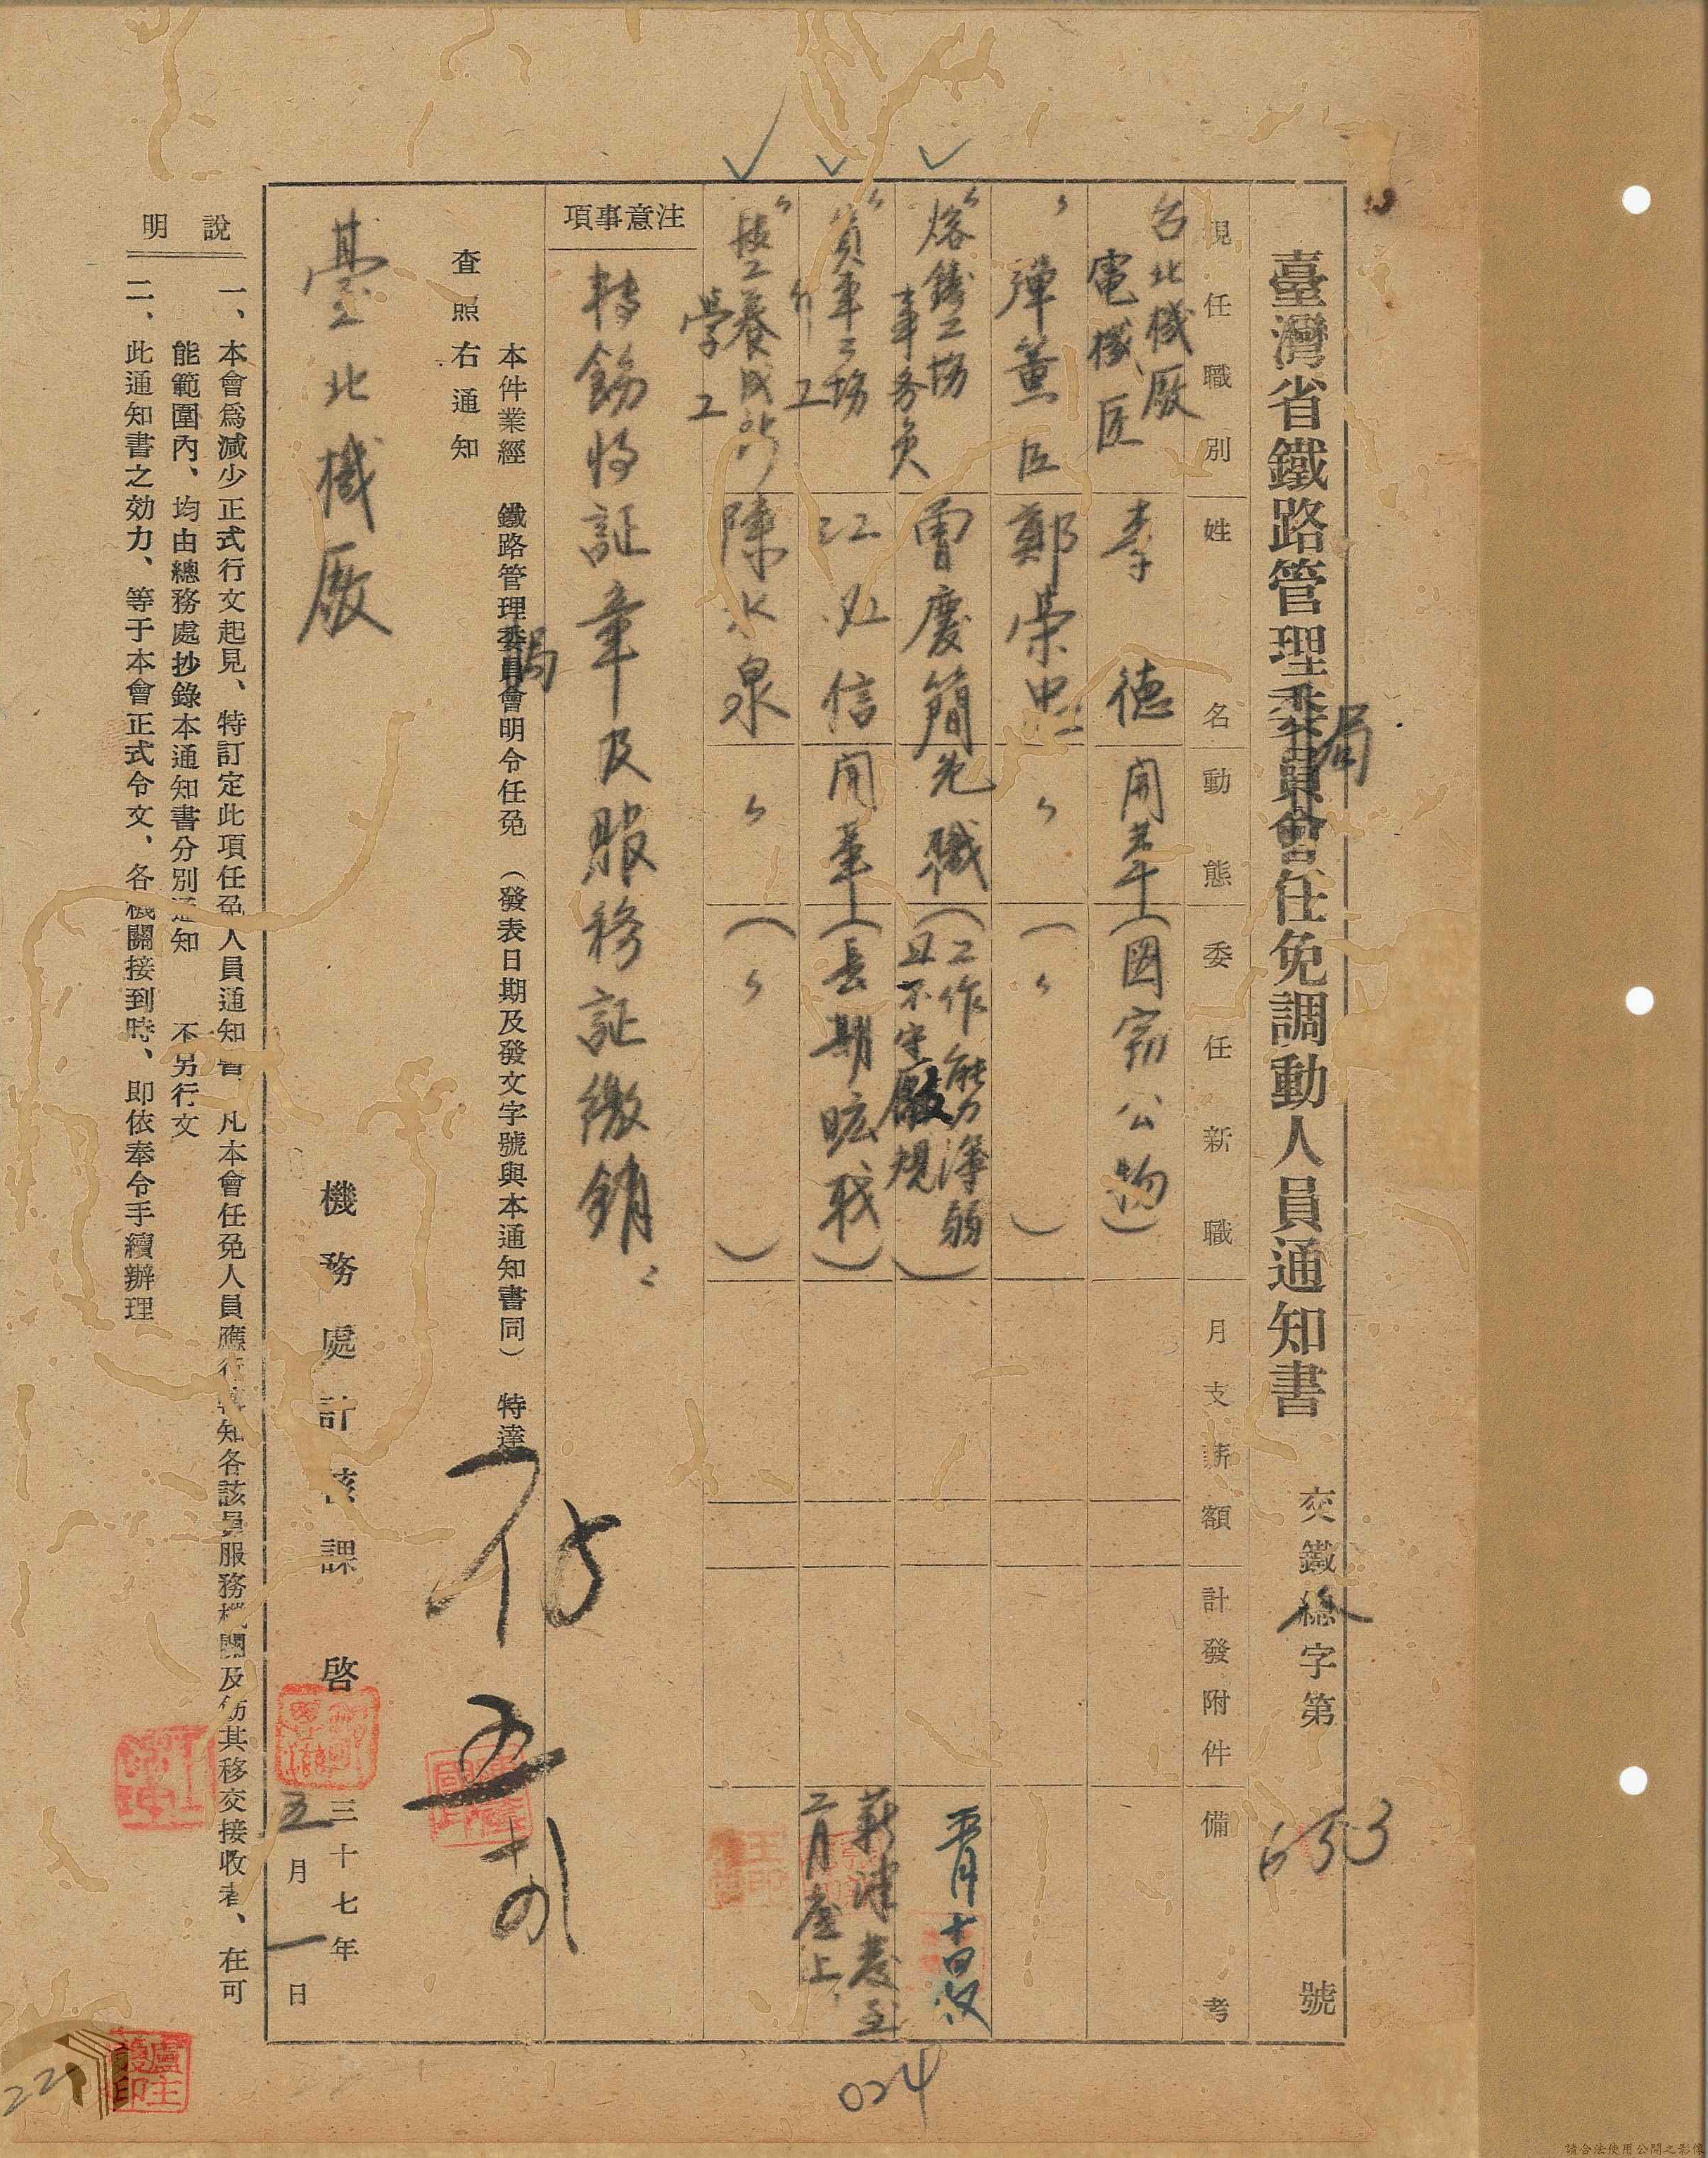 臺灣省鐵路管理委員會任免調動人員通知書
局
交鐵總字第6353號
現任職別
姓名
動態
委任新職
月支薪額
計發附件
備考
台北機厰
電機匠
李德
開革
(因竊公物)
〃彈簧匠
鄭榮忠
〃
(〃)
〃熔鑄工場
事务員
曹慶簡
免職
(工作能力薄弱
且不守厰規)
〃貨車工場
工
江
信
開革
(長期旷职)
〃技工養成所
學工
陳水泉
〃
(〃)
薪津發至
二月底止
注意事項
轉飭將証章及服務証繳銷
本件業經 鐵路管理委員會明令任免 (發表日期及發文字號與本通知書同) 特達
局
查照右通知
臺北機厰
機務處計核課 啓
三十七年
五月一日
說明
一、本會爲減少正式行文起見、特訂定此項任免人員通知書、凡本會任免人員應行轉知各該員服務機關及飭其移交接收者、在可
能範圍內、均由總務處抄錄本通知書分別通知 不另行文
二、此通知書之効力、等于本會正式令文、各機關接到時、即依奉令手續辦理
024
221
請合法使用公開之影像